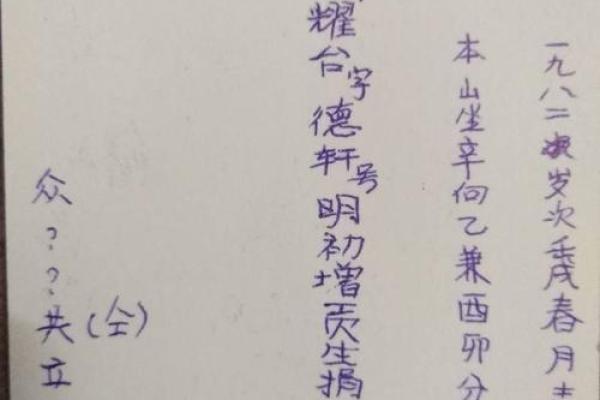 一九八二岁次壬戌春月
本山坐辛向乙兼酉卯分
耀台字德轩号明初增贡生捐
众??共(仝)立